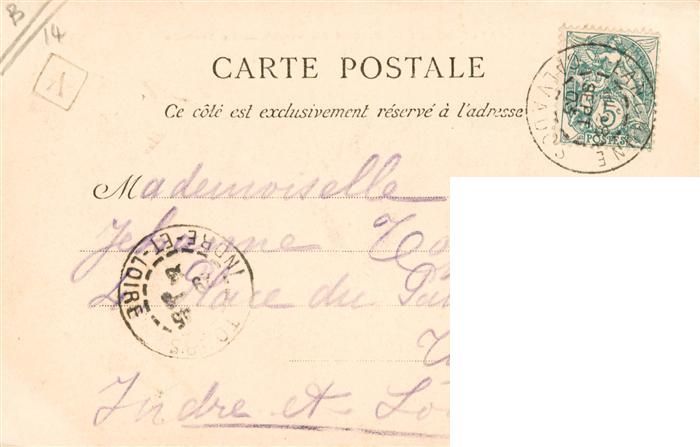 B
14
CARTE POSTALE
Ce côté est exclusivement réservé à l'adresse
5
POSTES
SEPT
03
Mademoiselle
Jehanne
Place du
Indre et
TOURS
INDRE-ET-LOIRE